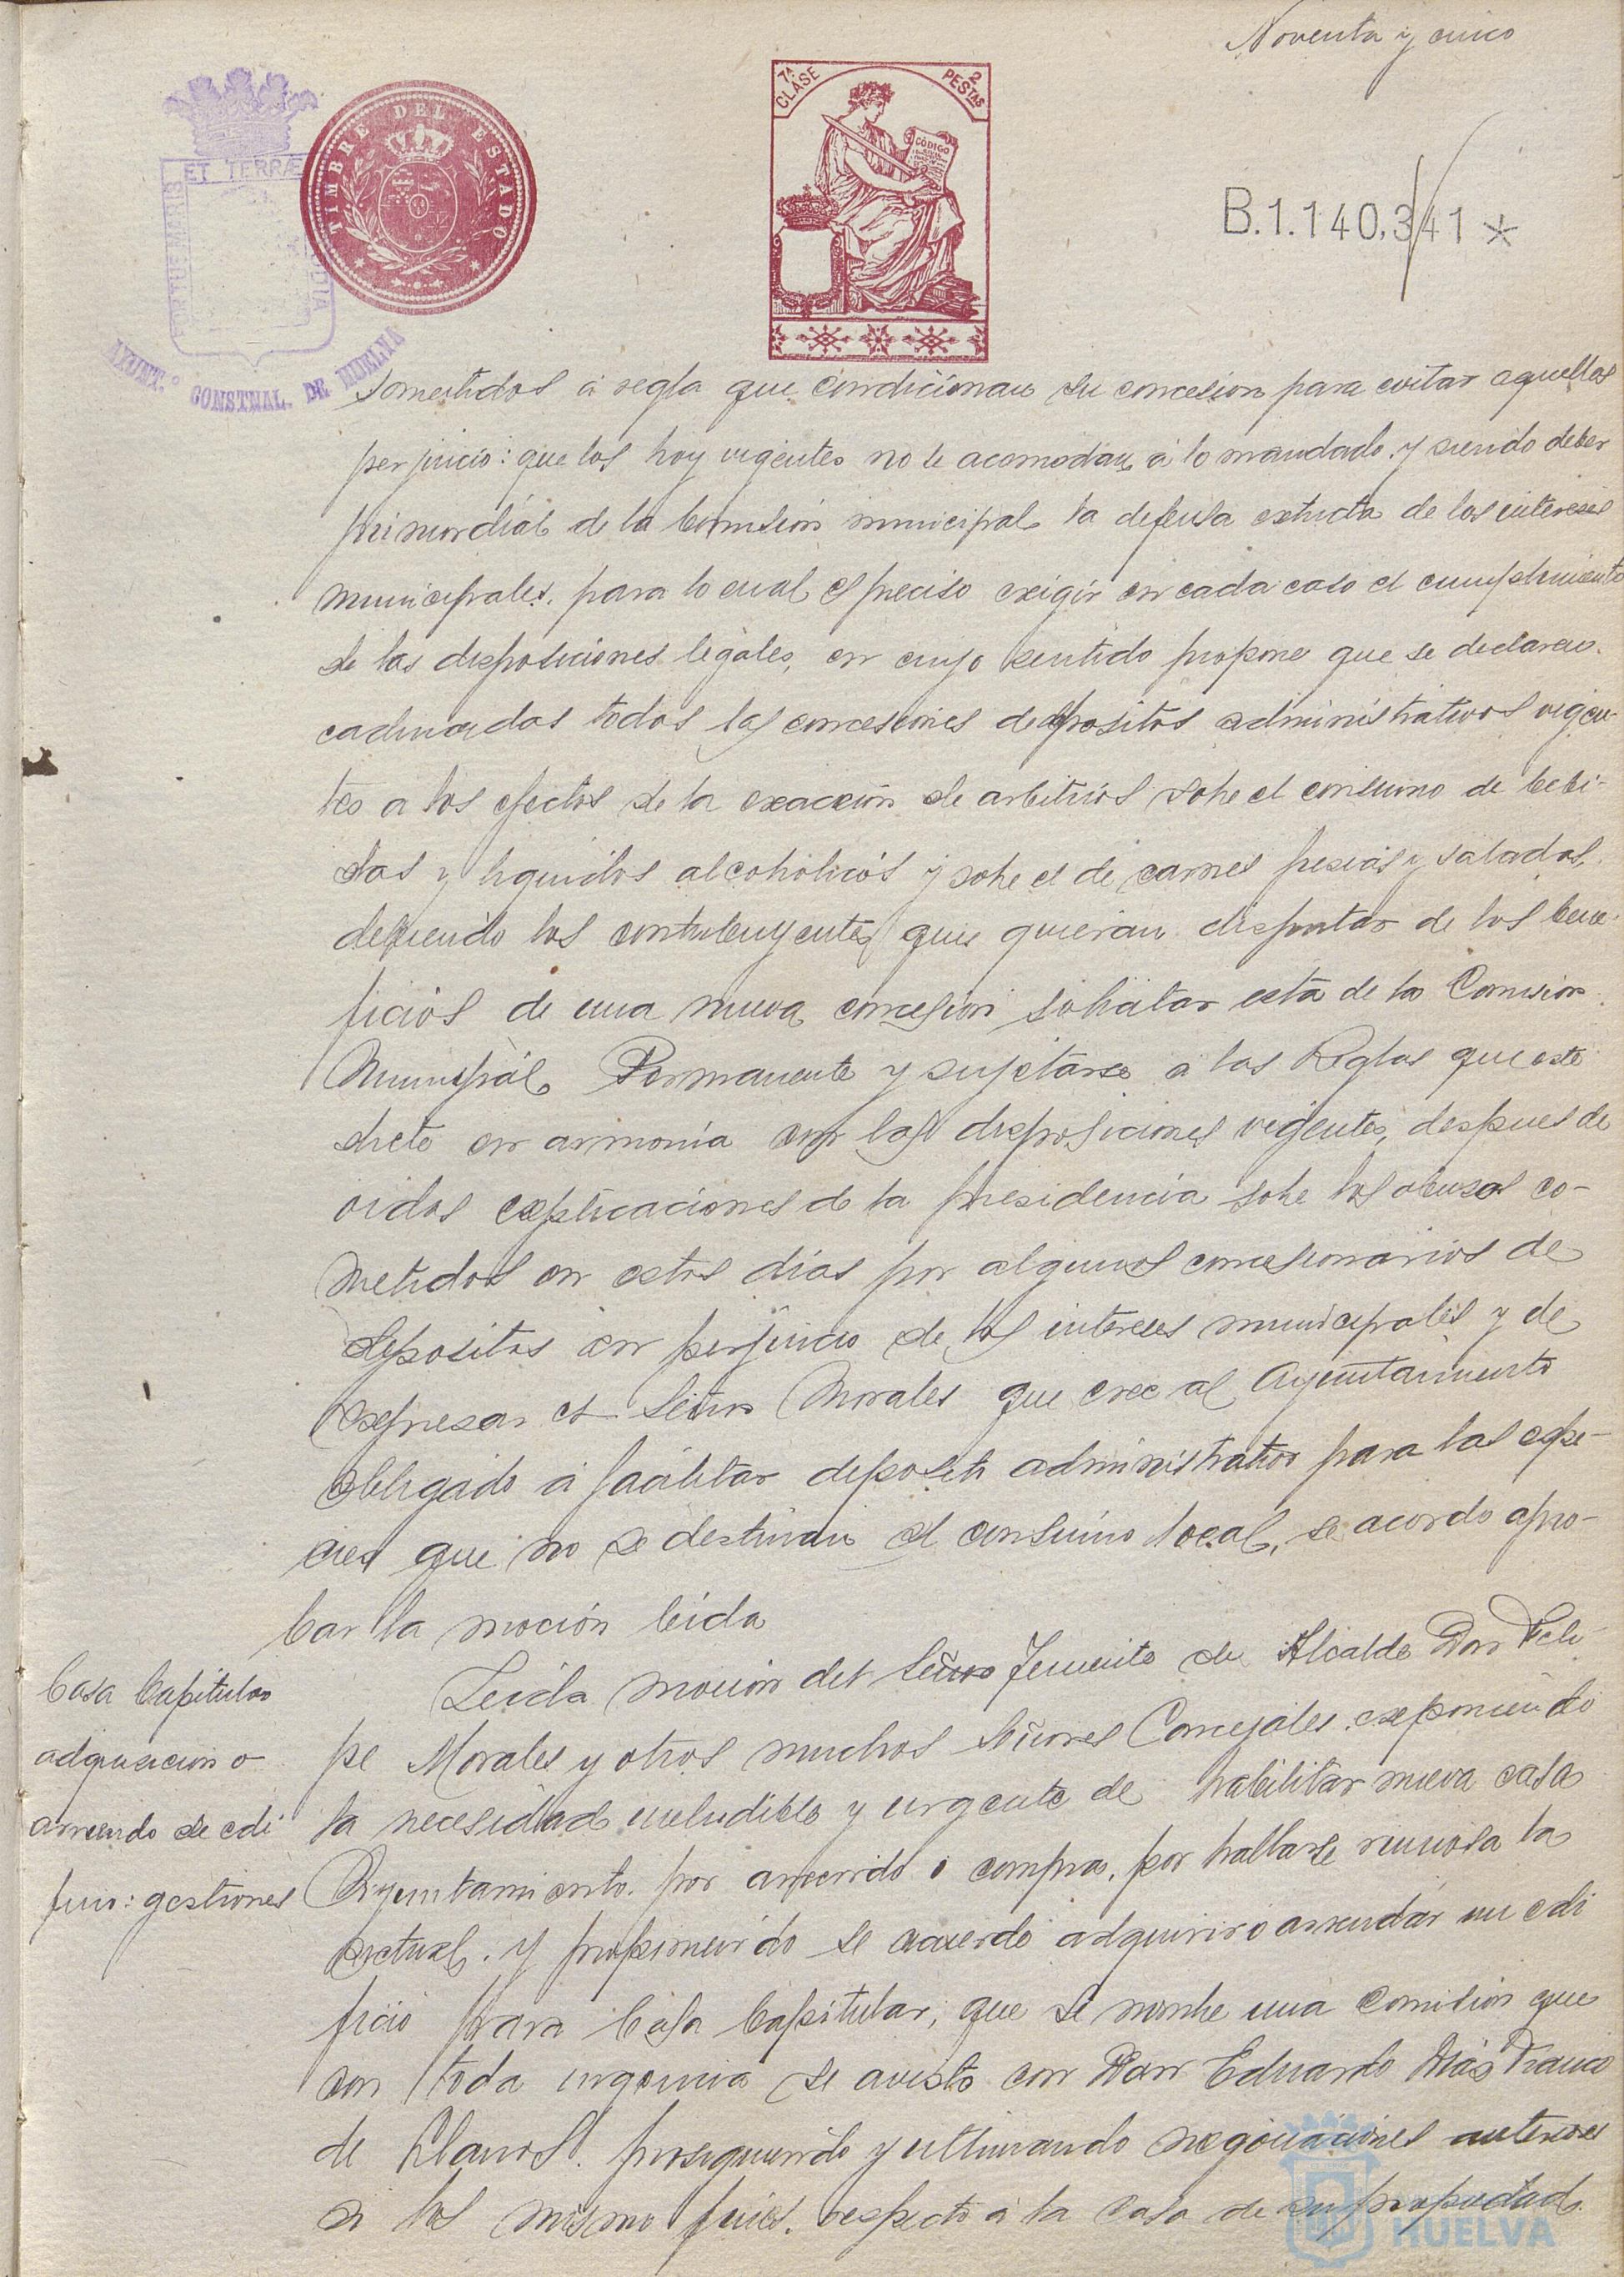 Noventa y cinco
7ª CLASE
2 PESTAS
TIMBRE DEL ESTADO
CÓDIGO
ET TERRÆ
AYUNT.º CONSTNAL. DE HUELVA
B.1.140,341*
sometidos á regla que condicionan su concesion para evitar aquellos
perjuicio: que los hoy vigentes no se acomodan á lo mandado. y siendo deber
primordial de la Comisión municipal la defensa extricta de los intereses
municipales, para lo cual es preciso exigir en cada caso el cumplimiento
de las disposiciones legales, en cuyo sentido propone que se declaren
caducadas todas las concesiones de depositos administrativos vigen-
tes a los efectos de la exacción de arbitrios sobre el consumo de bebi-
das y liquidos alcoholicos y sobre el de carnes frescas y saladas,
debiendo los contribuyentes que quieran disfrutar de los bene-
ficios de una nueva concesion solicitar esta de la Comision
Municipal Permanente y sujetarse a las Reglas que este
dicte en armonía con las disposiciones vigentes, despues de
oidas explicaciones de la presidencia sobre los abusos co-
metidos en estos dias por algunos concesionarios de
depositos en perjuicio de los intereses municipales y de
expresar el Señor Morales que cree al Ayuntamiento
obligado á facilitar deposito administrativo para las espe-
cies que no se destinan al consumo local, se acordo apro-
bar la moción leida
Casa Capitular
adquisicion o
arriendo de edi
ficio: gestiones
Leida mocion del Señor Teniente de Alcalde Don Feli-
pe Morales y otros muchos Señores Concejales exponiendo
la necesidad ineludible y urgente de habilitar nueva casa
Ayuntamiento. por arriendo o compra, por hallarse ruinosa la
actual. y proponiendo se acuerde adquirir o arrendar un edi
ficio para Casa Capitular, que se nombre una comision que
con toda urgencia se aviste con Don Eduardo Días Franco
de Llanos. prosiguiendo y ultimando negociaciones anteriores
a los mismo fines. respecto á la casa de su propiedad
HUELVA